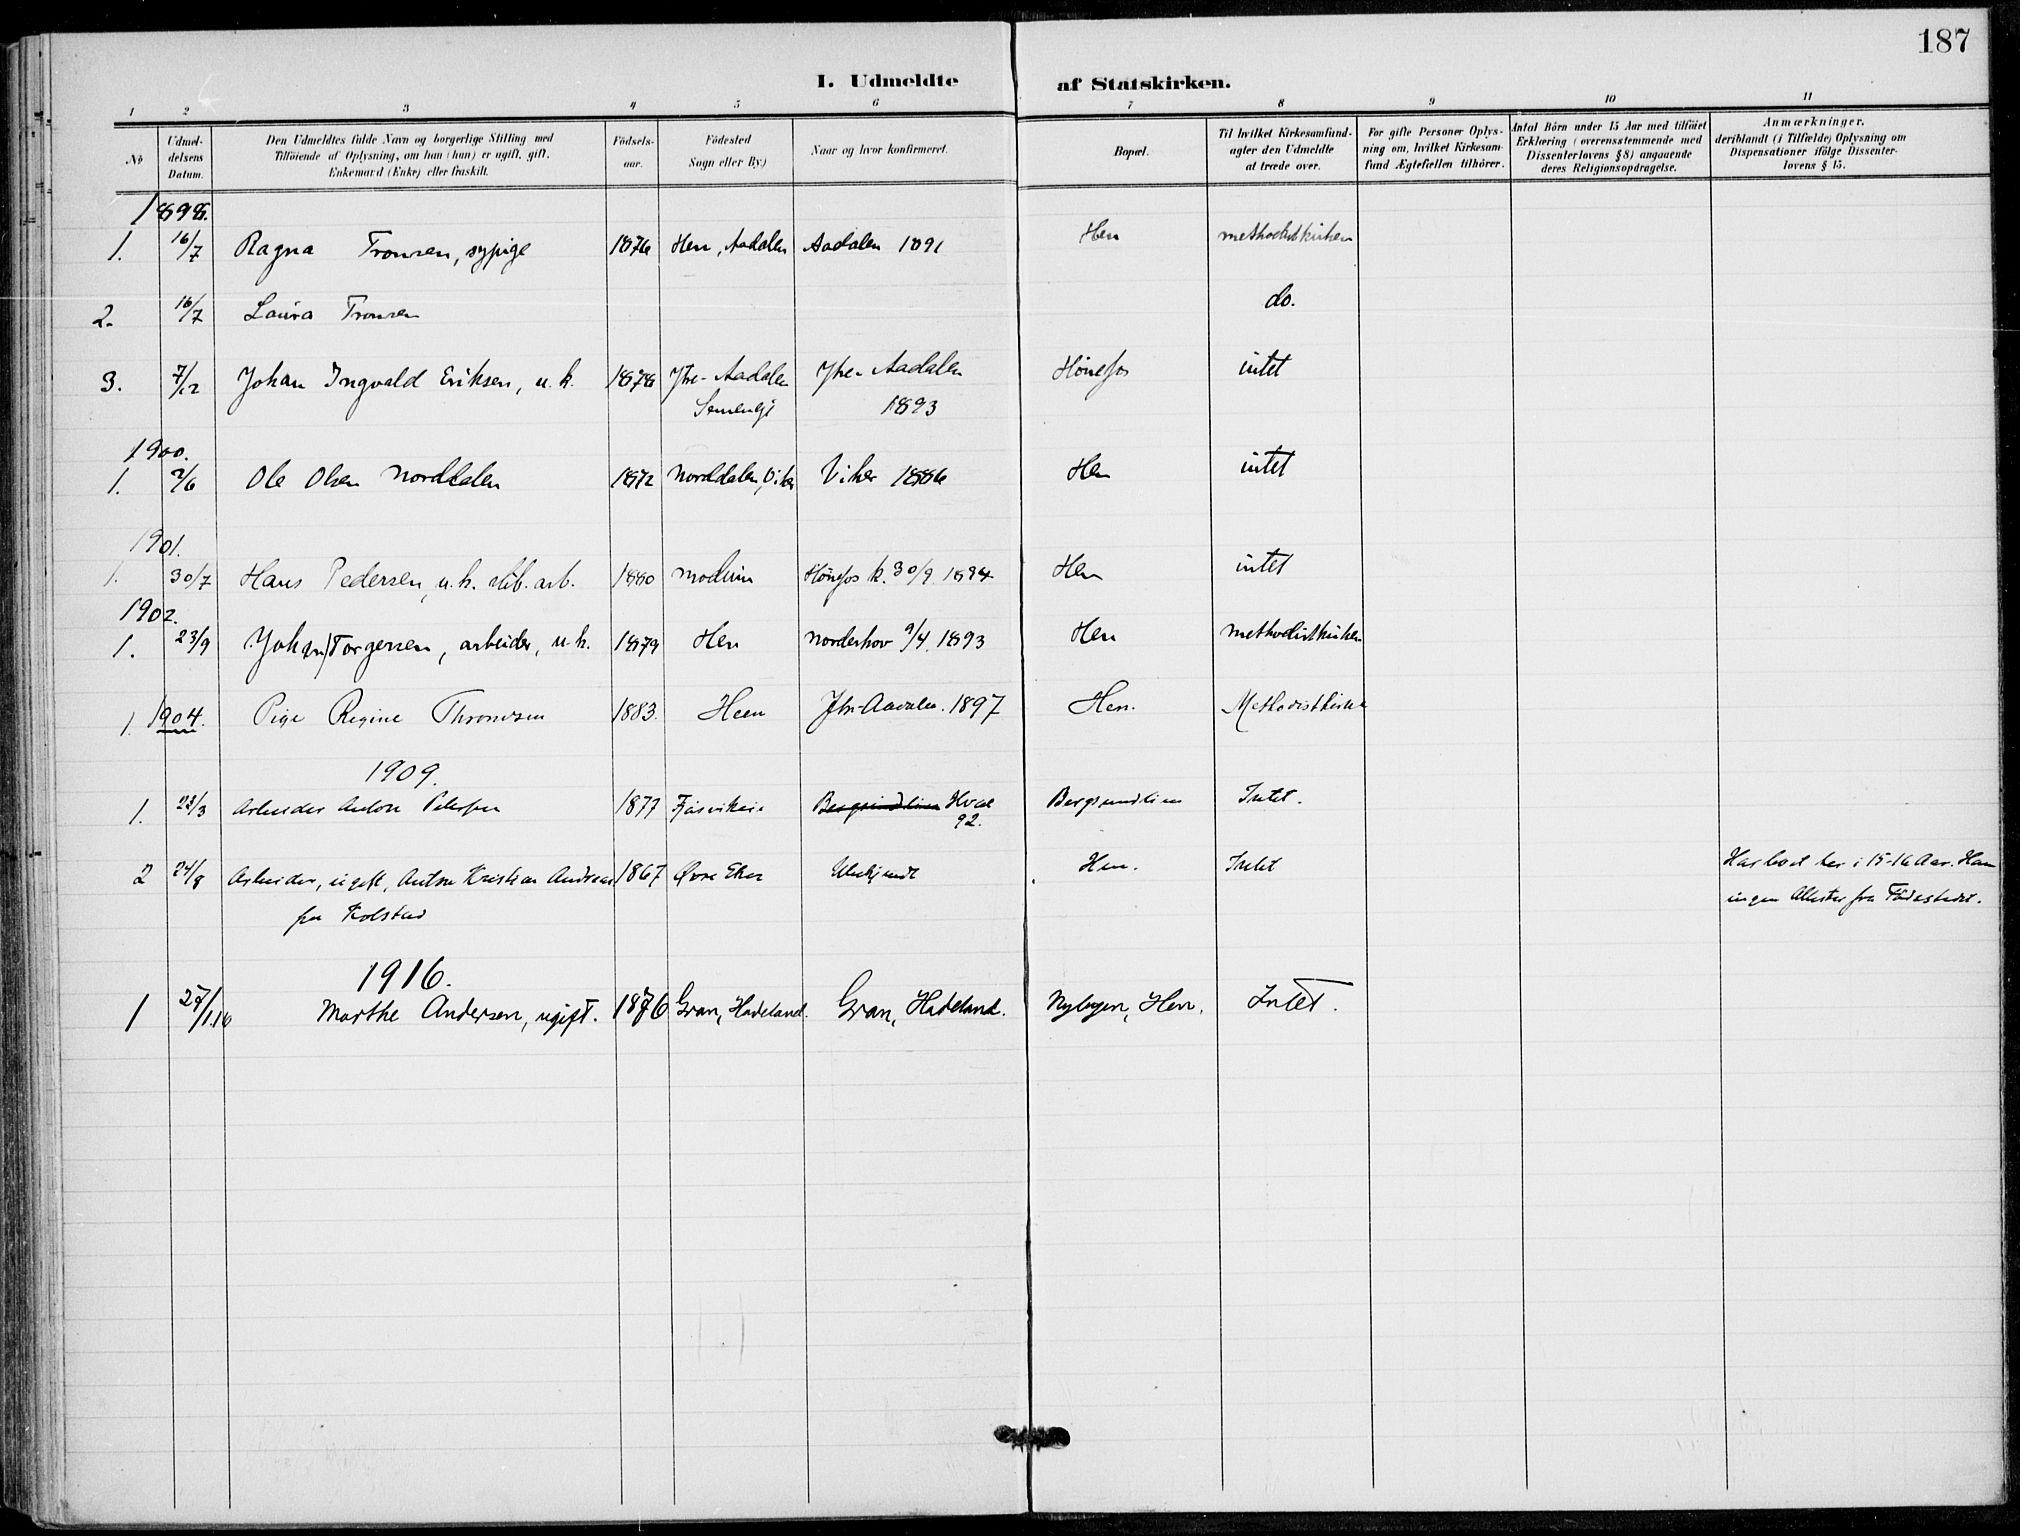 187
I. Udmeldte af Statskirken.
1 2 3 4 5 6 7 8 9 10 11
No
Udmel-
delsens
Datum.
Den Udmeldtes fulde Navn og borgerlige Stilling med
Tilföiende af Oplysning, om han (hun) er ugift, gift,
Enkemand (Enke) eller fraskilt.
Födsels-
aar.
Födested
Sogn eller By.)
Naar og hvor konfirmeret.
Bopæl.
Til hvilket Kirkesamfund-
agter den Udmeldte
at træde over.
For gifte Personer Oplys-
ning om, hvilket Kirkesam-
fund Ægtefællen tilhörer.
Antal Börn under 15 Aar med tilföiet
Erklæring (overensstemmende med
Dissenterlovens § 8) angaaende
deres Religionsopdragelse.
Anmærkninger,
deriblandt (i Tilfælde) Oplysning om
Dispensationer ifölge Dissenter-
lovens § 15.
1898.
1. 16/7 Ragna Tronsen, sypige 1876 Hen, Aadalen Aadalen 1891 Hen methodistkirken
2. 16/7 Laura Tronsen do.
3. 7/12 Johan Ingvald Eriksen, u.k. 1878 Ytre-Aadalen Ytre-Aadalen Hönefos intet
1893
1900.
1. 2/6 Ole Olsen Norddalen 1872 Norddalen, Viker Viker 1886 Hen intet
1901.
1. 30/7 Hans Pedersen, u.k. slib.arb. 1880 Modum Hönefos k. 30/9 1894 Hen intet
1902.
1. 23/9 Johan Torgersen, arbeider, u.k. 1879 Hen Norderhov 9/4 1893 Hen methodistkirken
1. 1904. Pige Regine Thronsen 1883. Heen Ytr-Aadalen. 1897 Hen. Methodistkirke
1909.
1. 23/3 Arbeider Anton Petersen 1877 Bergsundlien Hval Bergsundlien Intet.
92.
2 24/8 Arbeider, ugift, Anton Kristian Andreas 1867 Øvre Eker Ubekjendt Hen. Intet Har boet her i 15-16 Aar. Har
Kolstad ingen Attester fra Fødestedet.
1916.
1 27/1.16 Marthe Andersen, ugift. 1876 Gran, Hadeland. Gran, Hadeland. Nybyen, Hen. Intet.